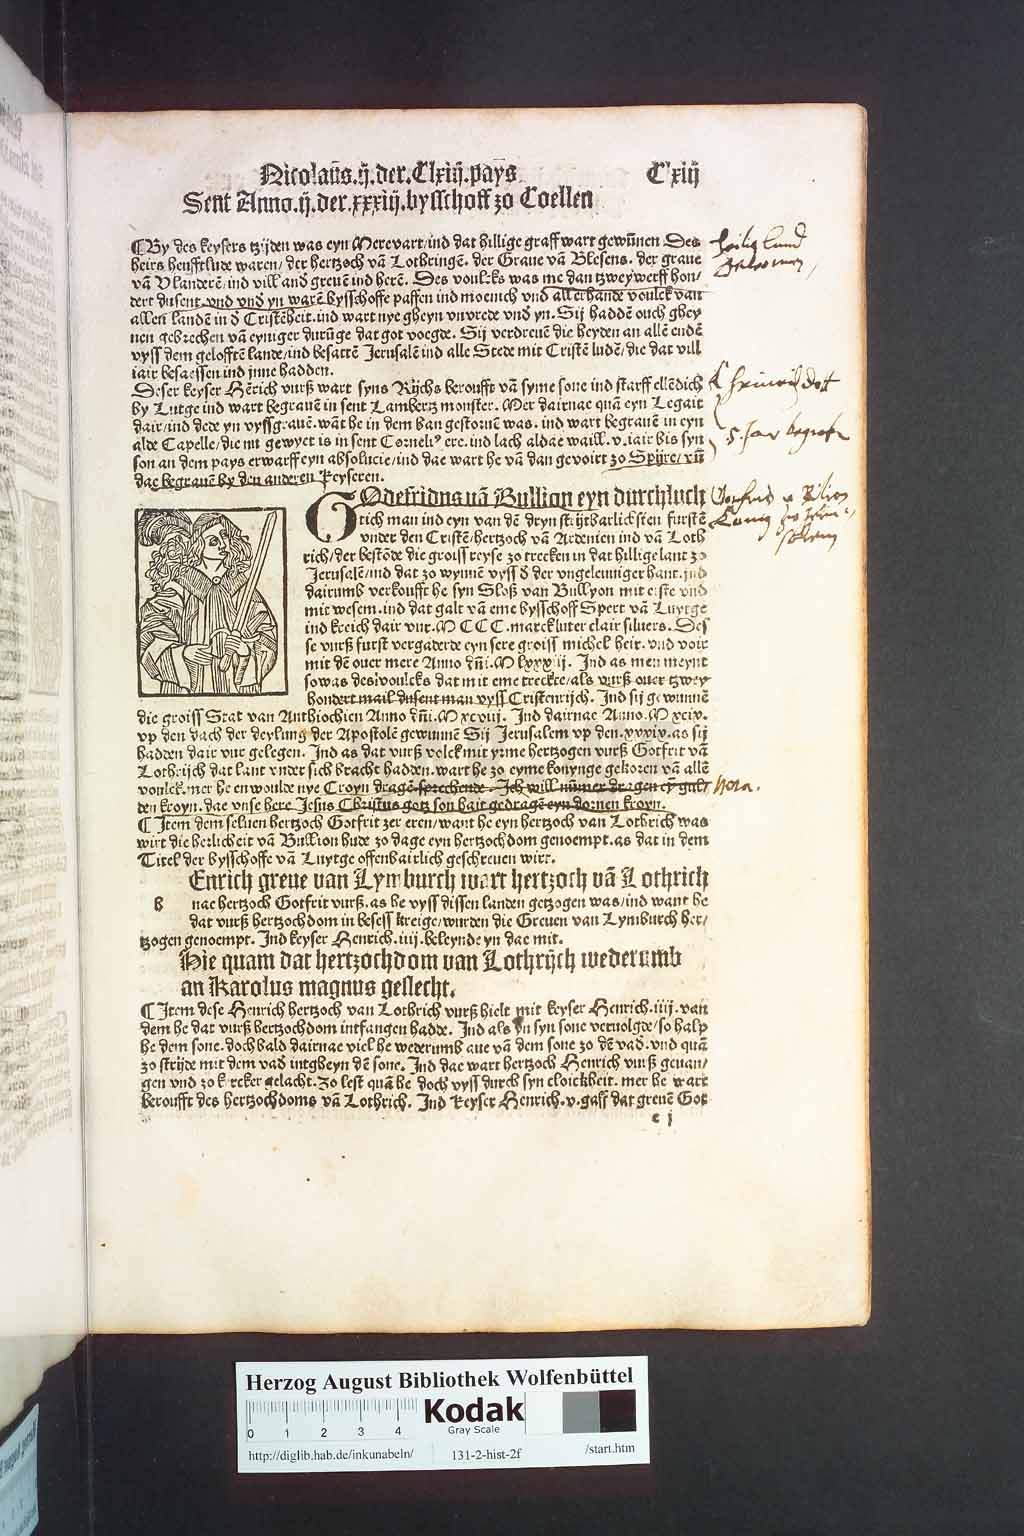 Nicolaūs.ij.der.Clxiij.pays. Clxiij
Sent Anno.ij.der.xxxiij.bysschoff zo Coellen
¶ By des keysers tzijden was eyn Merevart/ind dat hillige graff wart gewūnen Des
heirs heufftlude waren/der hertzoch vā Lothringē. der Graue vā Blesens. der graue
vā Vlanderē/ind vill and greuē ind herē. Des voulcks was me dan tzweywerff hon/
dert dusent.vnd vnd yn warē bysschoffe paffen ind moenich vnd allerhande voulck van
allen landē in d Cristēheit.ind wart nye gheyn vnvrede vnd yn. Sij haddē ouch ghey
nen gebrechen vā eyniger durūge dat got voegde. Sij verdreuē die heyden an allē endē
vyss dem gelofftē lande/ind besattē Jerusalē ind alle Stede mit Cristē ludē/die dat vill
iair besaessen ind jnne hadden.
Deser keyser Hērich vurß wart syns Rijchs beroufft vā syme sone ind starff ellēdich
by Lutge ind wart begrauē in sent Lambertz monster. Mer dairnae quā eyn Legait
dair/ind dede yn vyssgrauē.wāt he in dem ban gestoruē was. ind wart begrauē in eyn
alde Capelle/die nu gewyet is in sent Corneliꝰ ere.ind lach aldae waill.v.iair bis syn
son an dem pays erwarff eyn absolucie/ind dae wart he vā dan gevoirt zo Spijre/vñ
dae begrauē by den anderen Keyseren.
GOdefridus uā Bullion eyn durchluch
tich man ind eyn van dē dryn strijtbarlicksten furstē
vnder den Cristē/hertzoch vā Ardenien ind vā Loth
rich/der bestōde die groiss reyse zo trecken in dat hillige lant zo
Jerusalē/ind dat zo wynnē vyss d der vngeleuuiger hant.ind
dairumb verkoufft he syn Sloß van Bullyon mit erste vnd
mit wesem.ind dat galt vā eme bysschoff Spert vā Luytge
ind kreich dair vur.M CCC.marck luter clair siluers. Des
se vurß furst vergaderde eyn sere groiss michel heir. vnd voir
mit dē ouer mere Anno dñi.M lxxxiij. Ind as men meynt
so was des voulcks dat mit eme treckte/als vurß ouer tzwey
hondert mail dusent man vyss Cristenrijch. Ind sij gewunnē
die groiss Stat van Anthiochien Anno dñi.M xcviij. Ind dairnae Anno.M xcix.
vp den dach der deylung der Apostolē gewinnē Sij Jerusalem vp den.xxxix.as sij
hadden dair vur gelegen. Ind as dat vurß volck mit yrme hertzogen vurß Gotfrit vā
Lothrijch dat lant vnder sich bracht hadden.wart he zo eyme konynge gekoren vā allē
voulck.mer he en woulde nye Croyn dragē sprechende. Ich will nūmer dragen eȳ gul/
den kroyn.dae vnse here Jesus Christus gotz son hait gedragē eyn dornen kroyn.
¶ Item dem seluen hertzoch Gotfrit zer eren/want he eyn hertzoch van Lothrich was
wirt die herlicheit vā Bullion hude zo dage eyn hertzochdom genoempt.as dat in dem
Titel der bysschoffe vā Luytge offenbairlich geschreuen wirt.
Enrich greue van Lymburch wart hertzoch vā Lothrich
nae hertzoch Gotfrit vurß.as he vyss dissen landen getzogen was/ind want he
dat vurß hertzochdom in besess kreige/wurden die Greuen van Lymburch her/
tzogen genoempt. Ind keyser Henrich.iiij.beleynde yn dae mit.
Hie quam dat hertzochdom van Lothrijch wederumb
an Karolus magnus geslecht.
¶ Item dese Henrich hertzoch van Lothrich vurß hielt mit keyser Henrich.iiij.van
dem he dat vurß hertzochdom intfangen hadde. Ind als yn syn sone veruolgde/so halp
he dem sone.doch bald dairnae viel he wederumb aue vā dem sone zo dē vad.vnd quā
zo strijde mit dem vad intgheyn dē sone. Ind dae wart hertzoch Henrich vurß geuan/
gen vnd zo kercker gelacht. Zo lest quā he doch vyss durch syn cloickheit. mer he wart
beroufft des hertzochdoms vā Lothrich. Ind keyser Henrich.v.gaff dat greuē Got
c j
Nota.
Herzog August Bibliothek Wolfenbüttel
0 1 2 3 4
Kodak
Gray Scale
http://diglib.hab.de/inkunabeln/ 131-2-hist-2f /start.htm